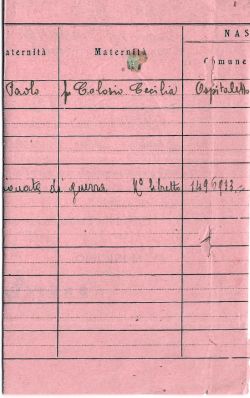 NAS
aternità Maternità Comune
Paolo fu Colosio Cecilia Ospitaletto
ionata di guerra N° libretto 1496933.=